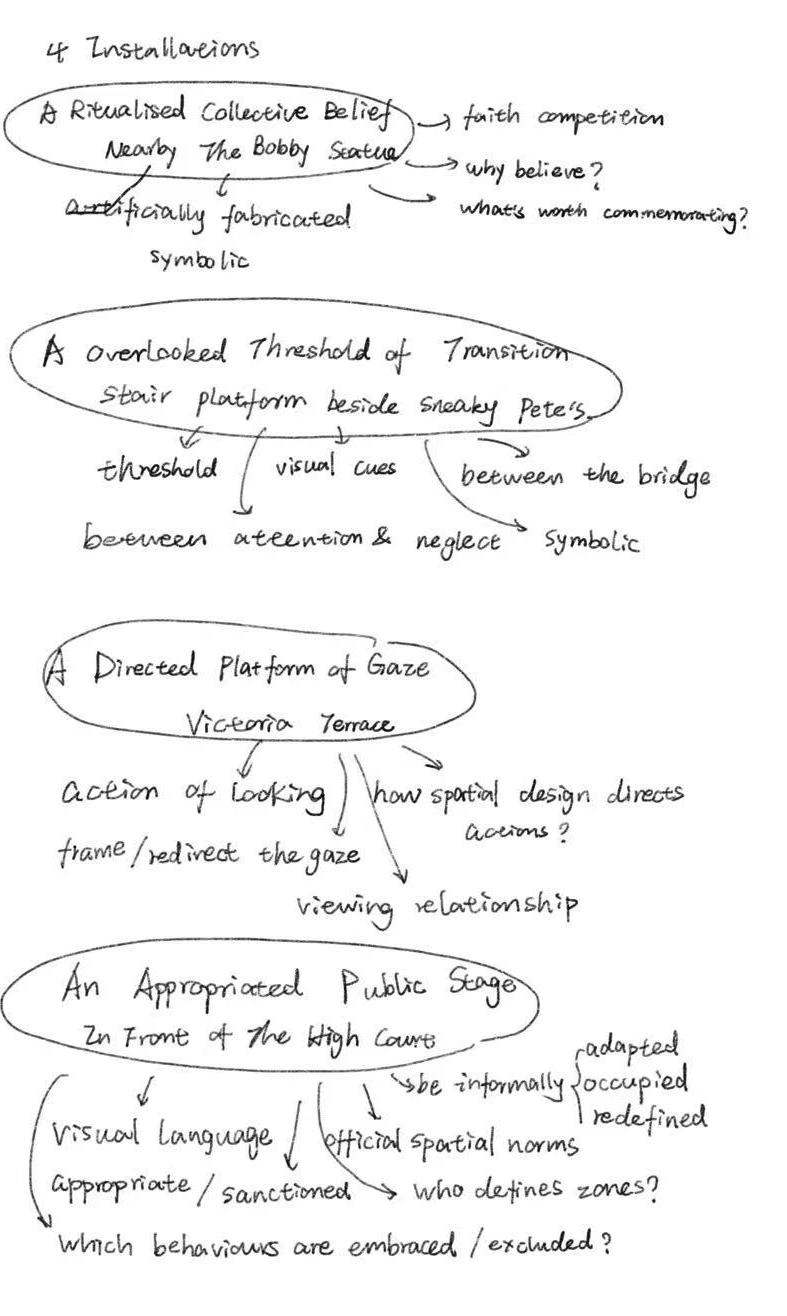 4 Installations
A Ritualised Collective Belief
Nearby The Bobby Statue
→ faith competition
→ why believe?
→ what's worth commemorating?
artificially fabricated
symbolic
A overlooked Threshold of Transition
Stair platform beside Sneaky Pete's
threshold
visual cues
between the bridge
between attention & neglect
symbolic
A Directed Platform of Gaze
Victoria Terrace
action of looking
how spatial design directs
actions?
frame/redirect the gaze
viewing relationship
An Appropriated Public Stage
In Front of The High Court
be informally { adapted
occupied
redefined
visual language
official spatial norms
appropriate / sanctioned
who defines zones?
which behaviours are embraced / excluded?